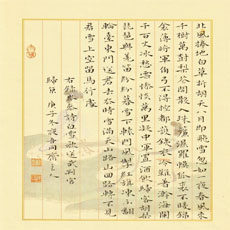 北風捲地白草折胡天八月即飛雪忽如一夜春風來
千樹萬樹梨花開散入珠簾濕羅幕狐裘不暖錦
衾薄將軍角弓不得控都護鐵衣冷難著瀚海闌
干百丈冰愁雲慘淡萬里凝中軍置酒飲歸客胡琴
琵琶與羌笛紛紛暮雪下轅門風掣紅旗凍不翻
輪臺東門送君去去時雪滿天山路山回路轉不見
君雪上空留馬行處
右錄岑參詩白雪歌送武判官
歸京 庚子冬夜齋主人